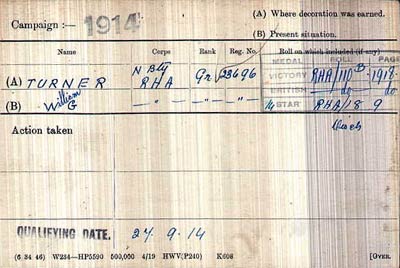 (A) Where decoration was earned.
Campaign :— 1914
(B) Present situation.
Name Corps Rank Reg. No. Roll on which included (if any)
MEDAL ROLL PAGE
N Bty
(A) TURNER RHA Gr 23696 VICTORY RHA/110 B 1918
BRITISH do do
(B) William G —"— —"— —"— 14 STAR RHA/8 9
Action taken
QUALIFYING DATE. 24.9.14
(6 34 46) W234—HP5590 500,000 4/19 HWV(P240) K608 [OVER.